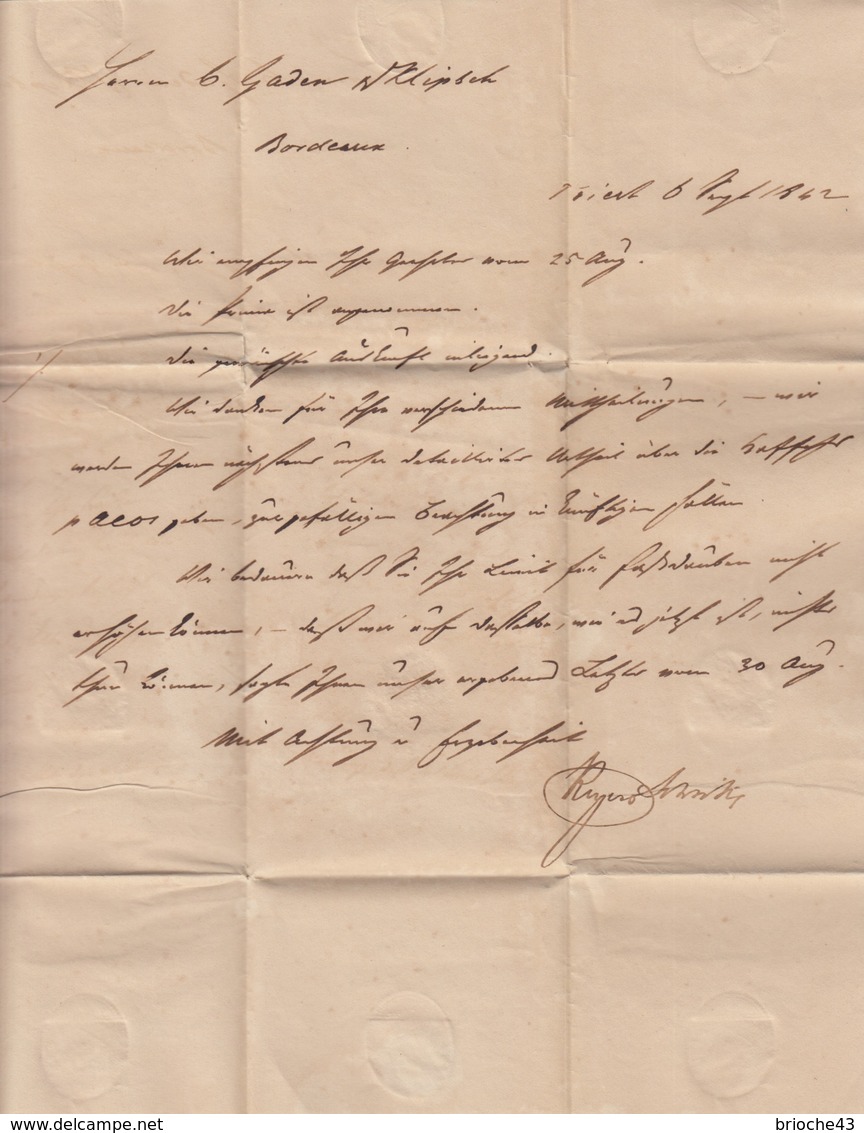 Herren C. Gaden & Klipsch
Bordeaux.
Triest 6 Sept 1842
Wir empfingen Ihr Geehrtes vom 25 Aug.
Die ist angenommen.
Die gewünschte Auskunft inliegend.
Wir danken für Ihre verschiedenen Mittheilungen, – wir
werden Ihnen nächstens unser detaillirtes Urtheil über die
geben, zur gefälligen Beachtung in künftigen Fällen.
Wir bedauern daß Sie Ihr Limit für Faßdauben nicht
erhöhen können, – daß wir auf dasselbe, wie es jetzt ist, nichts
thun können, sagte Ihnen unser ergebenes Letztes vom 30 Aug.
Mit Achtung u Ergebenheit
Reyer & Schlik
brioche43